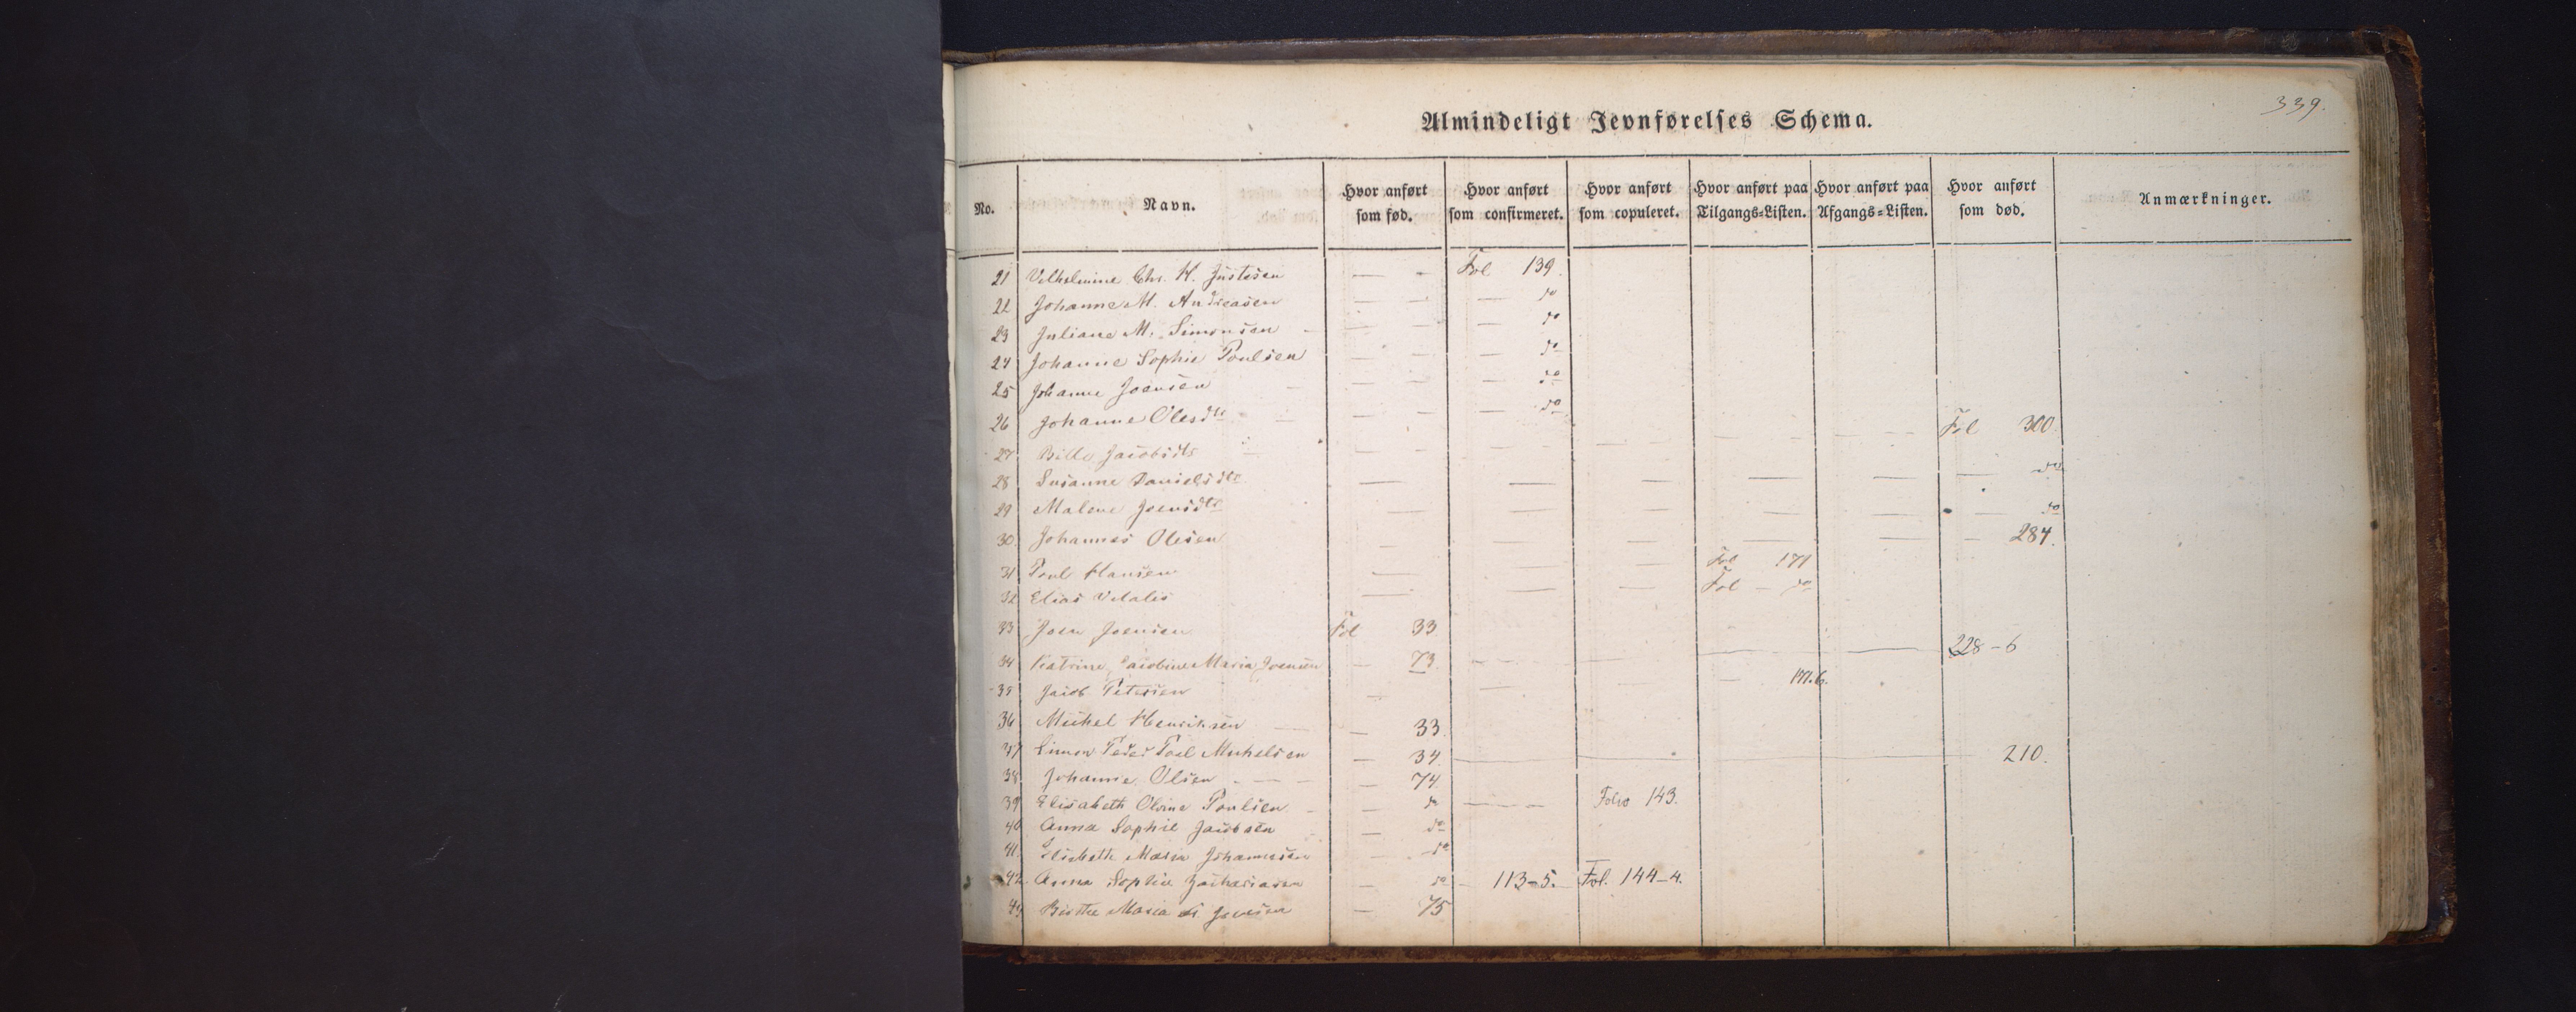 339.
Almindeligt Jevnførelses Schema.
No. Navn. Hvor anført som fød. Hvor anført som confirmeret. Hvor anført som copuleret. Hvor anført paa Tilgangs-Listen. Hvor anført paa Afgangs-Listen. Hvor anført som død. Anmærkninger.
21 Vilhelmine Chr. H. Justesen — - Fol 139.
22 Johanne M. Andreasen — — — do
23 Juliane M. Simonsen — — — do
24 Johanne Sophie Poulsen — — — do
25 Johanne Joensen — — — do
26 Johanne Olesdtr — — — do
27 Bille Jacobsdtr — — — — — — — — — — Fol 300.
28 Susanne Danielsdtr — — — — — — do
29 Malene Joensdtr — — — — — — do
30 Johannes Olesen — — — — — — 284.
31 Poul Hansen — — — Fol 177
32 Elias Vitalis — — — Fol — do
33 Joen Joensen Fol 33
34 Katrine Jacobine Maria Joensen — 73. — — — — — — 228-6
35 Jacob Petersen — — — — 177.6.
36 Michel Henriksen — 33.
37 Simon Peder Poel Michelsen — 34. — — — — 210.
38 Johanne Olsen — 74.
39 Elisabeth Olvine Poulsen — do — — Folio 143.
40 Anna Sophie Jacobsen — do
41. Elisbeth Maria Johannesen — do
42. Anna Sophie Zachariasen — do 113-5. Fol. 144-4.
43 Birthe Maria Joensen — 75